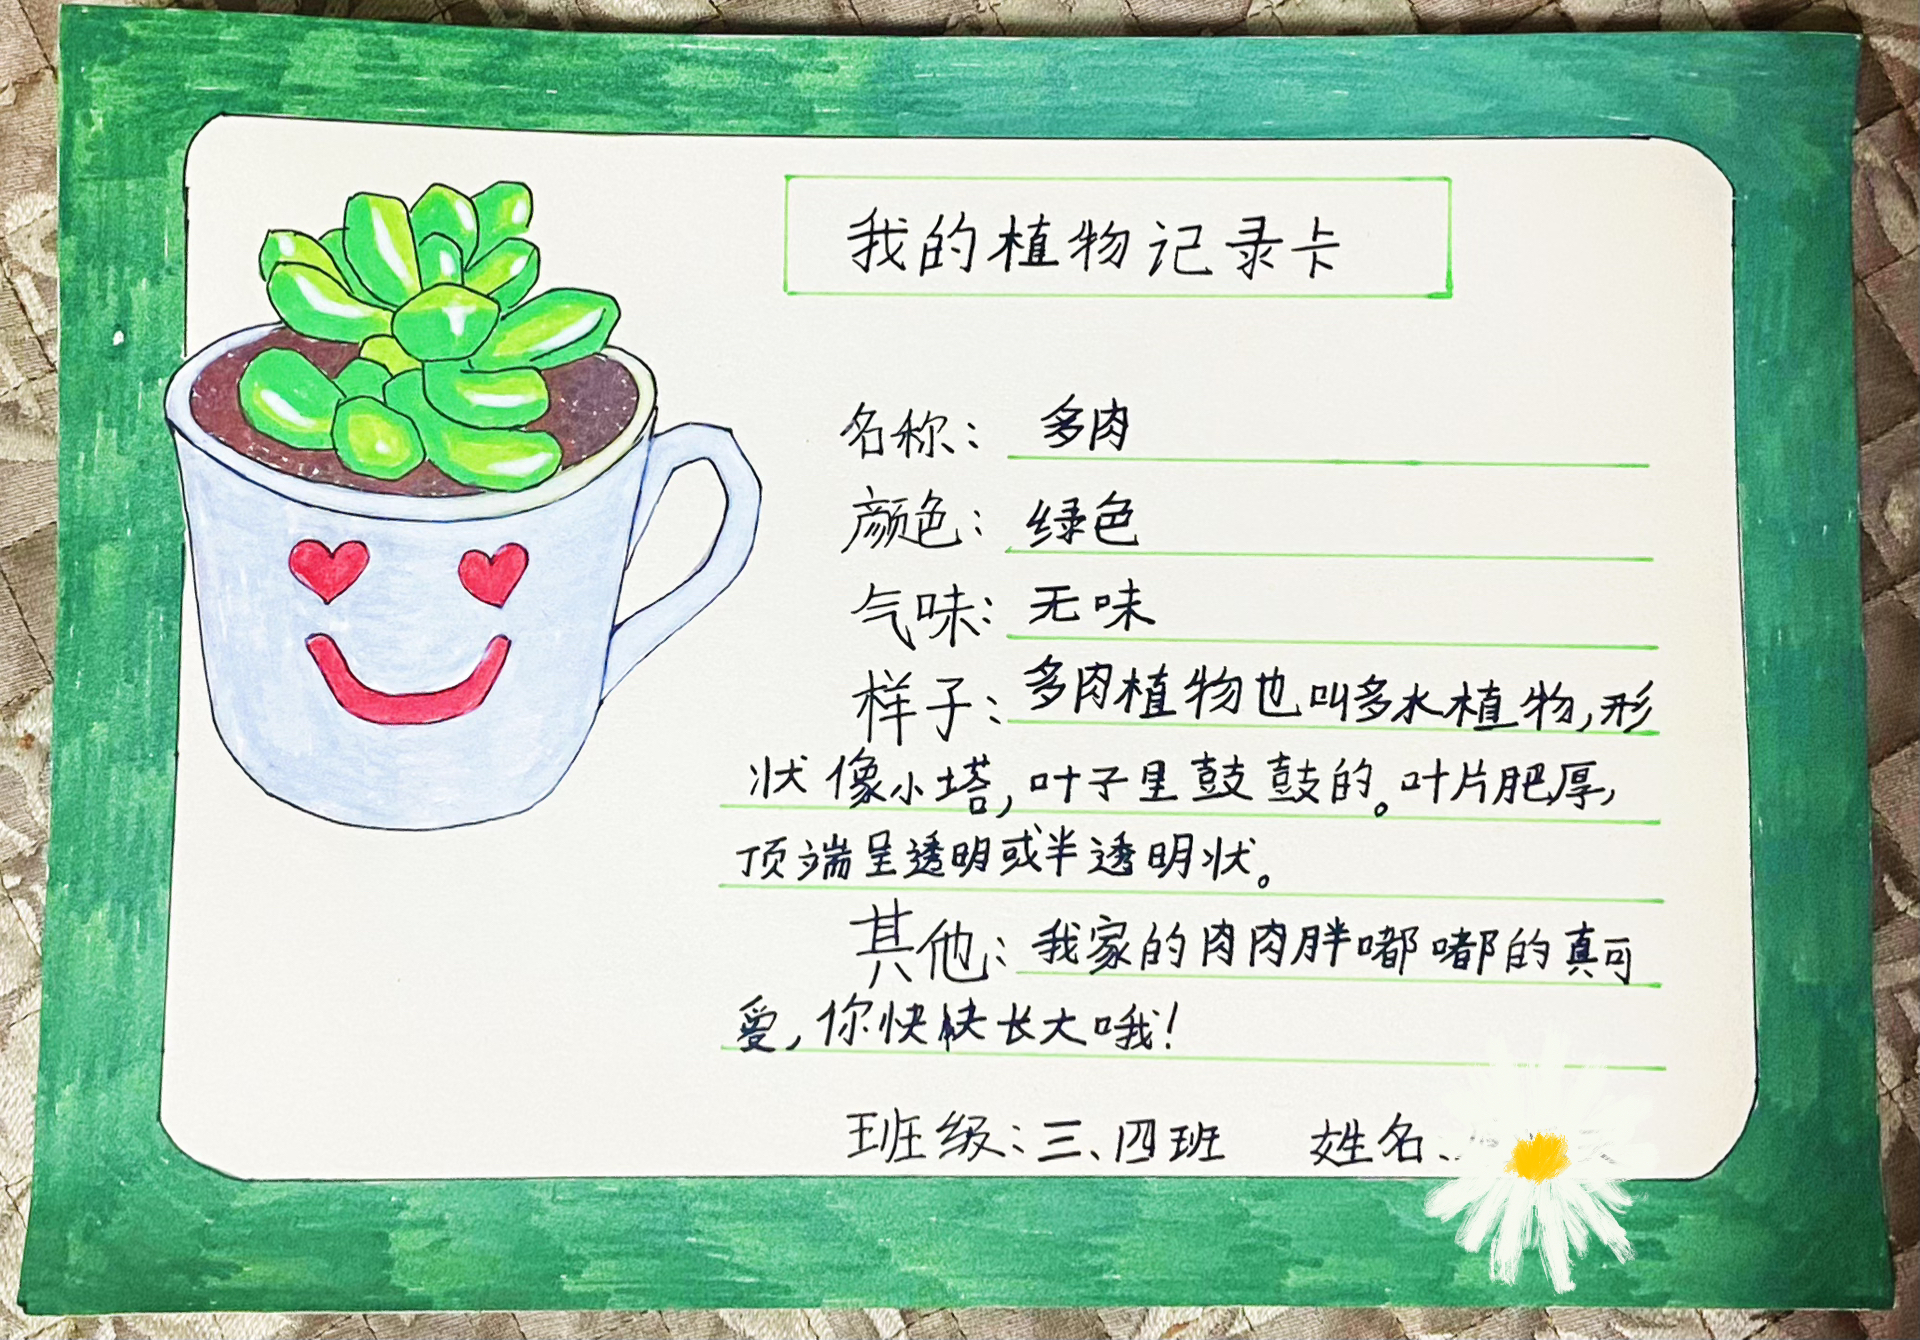 我的植物记录卡
名称：多肉
颜色：绿色
气味：无味
样子：多肉植物也叫多水植物，形
状像小塔，叶子里鼓鼓的。叶片肥厚，
顶端呈透明或半透明状。
其他：我家的肉肉胖嘟嘟的真可
爱，你快快长大哦！
班级：三、四班 姓名：